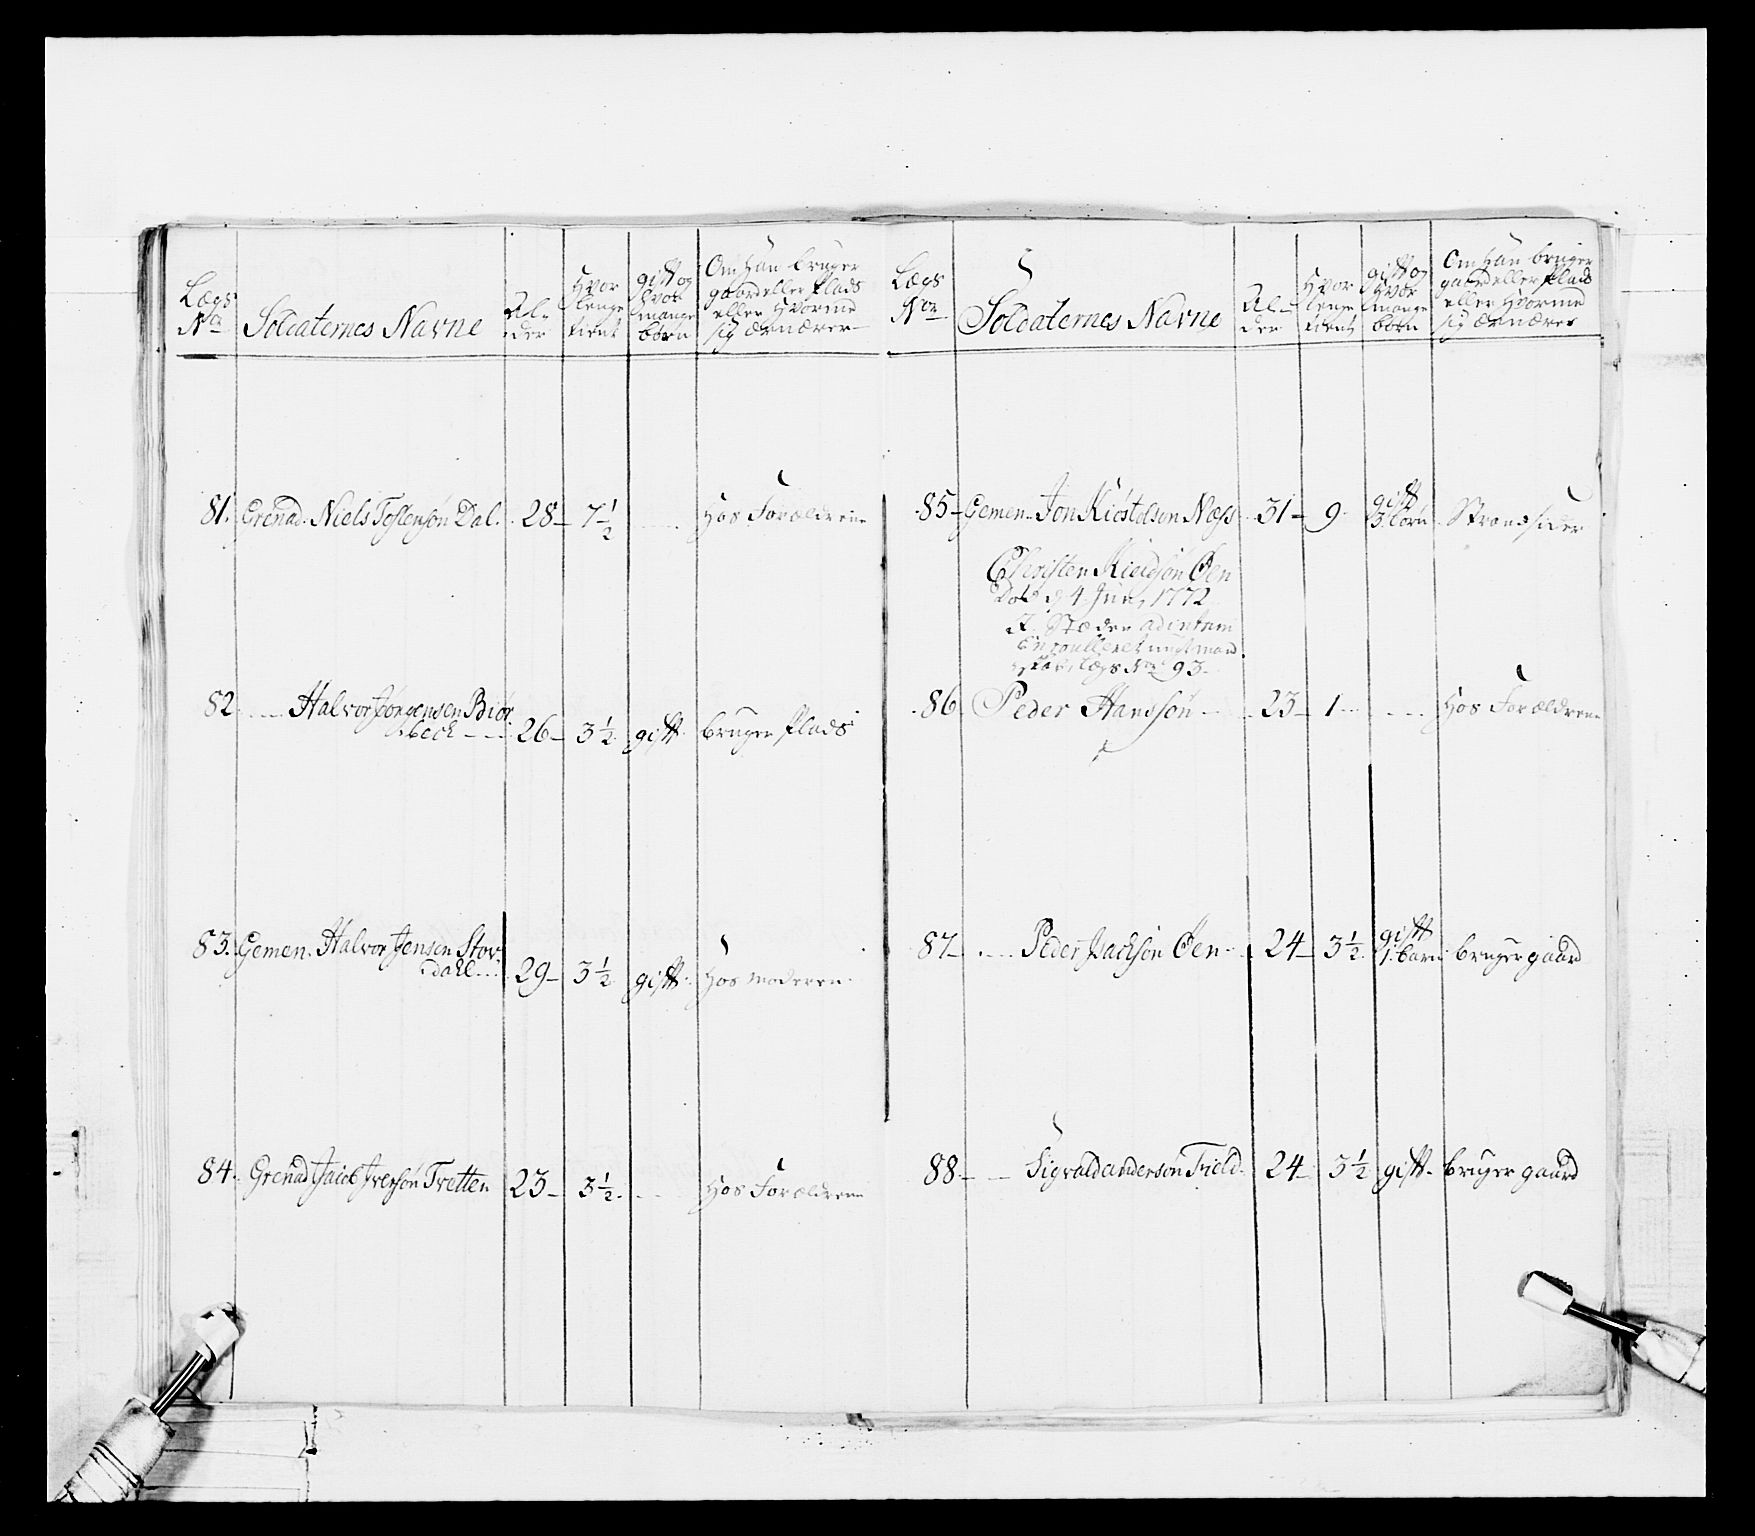 Lægs
No
Soldaternes Navne
Al-
der
Hvor
lenge
tient
gift og
hvor
mange
børn
Om Han bruger
gaard eller Plads
eller Hvormed
sig ærnærer
81. Grenad. Niels Toslensøn Dal. 28 7 1/2 Hos Forældrene
82 Halvor Jørgensen Biør-
beck 26 3 1/2 gift bruger Plads
83. Gemen. Halvor Jensen Stov-
dahl 29 3 1/2 gift Hos Moderen
84. Grenad Jacob Iversøn Tvetten 23 3 1/2 Hos Forældrene
Lægs
No
Soldaternes Navne
Al-
der
Hvor
lenge
tient
gift og
Hvor
mange
børn
Om Han bruger
gaard eller Plads
eller Hvormed
sig ærnærer
85 Gemen. Jon Kiøstelsøn Næss 31 9 gift
3 børn Strandsider
Christen Øen
4 Juny 1772
Stæden ad interim
Enroulleret ungt mand
Lægs No 93
86 Peder Hansøn 23 1 Hos Forældrene
87 Peder Jsachsøn Øen 24 3 1/2 gift
1 barn bruger gaard
88 Sigvald anderson Field 24 3 1/2 gift bruger gaard